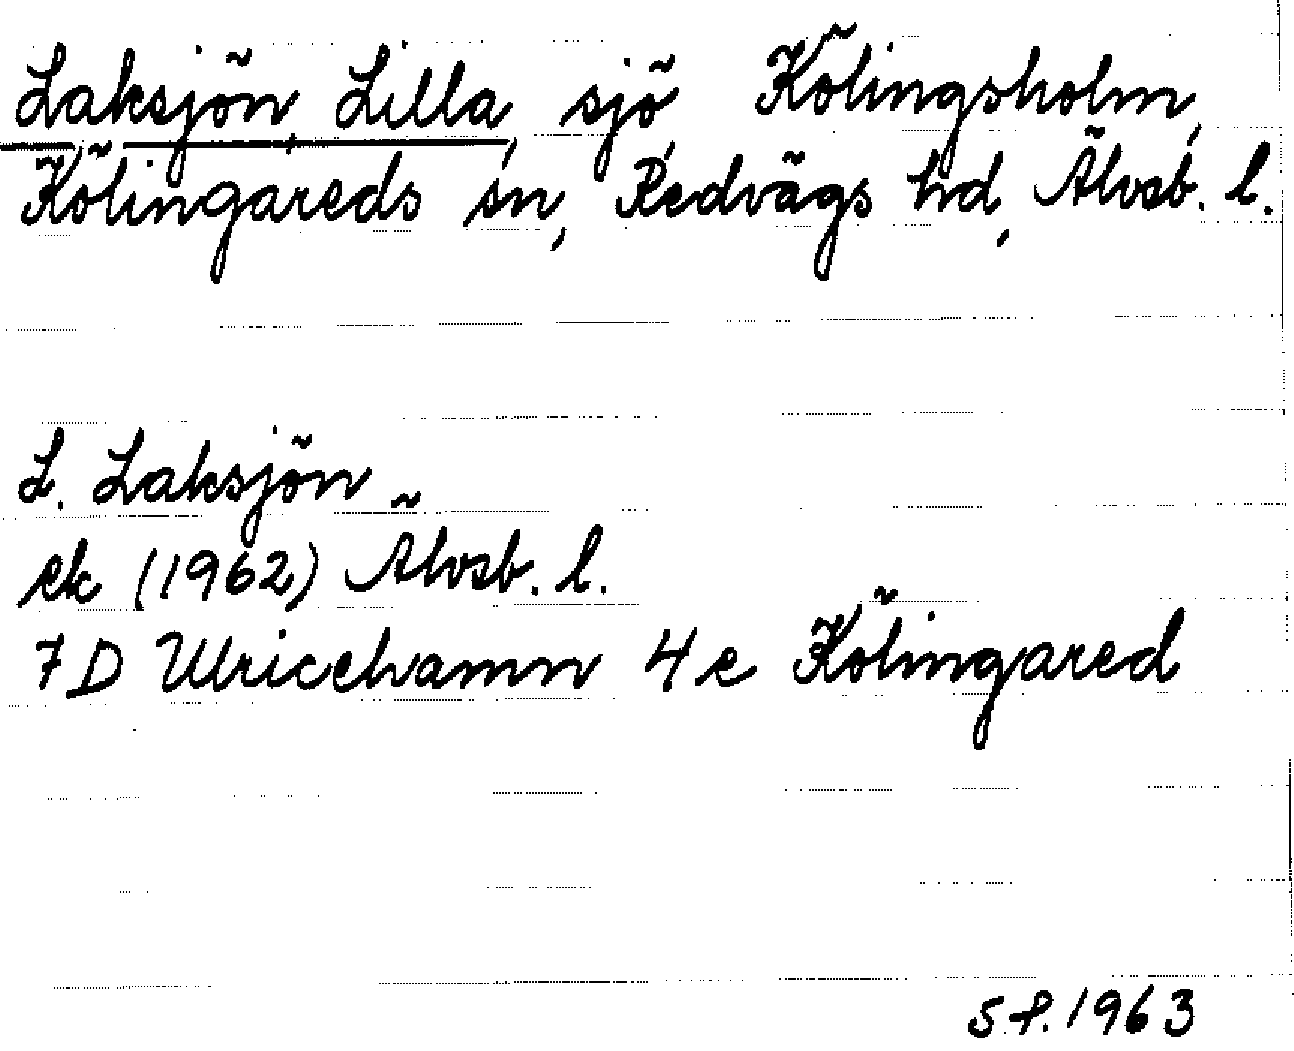 Laksjön, Lilla, sjö, Kölingsholm,
Kölingareds sn, Redvägs hd, Älvsb. l.
L. Laksjön
ek (1962) Älvsb. l.
7D Ulricehamn 4e Kölingared
S.P. 1963